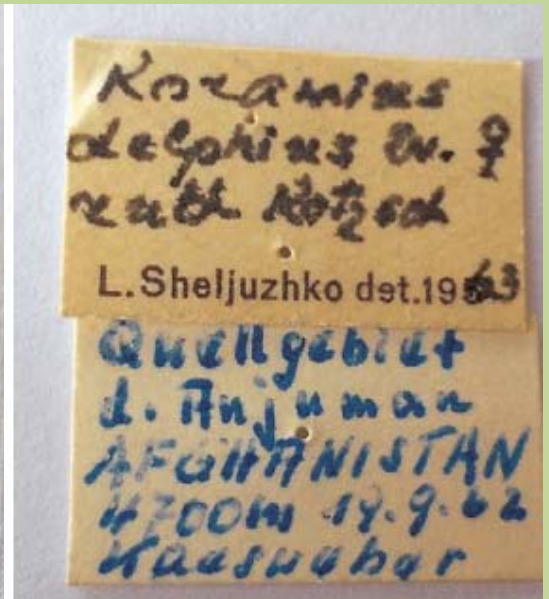 Koramius
delphius Ev. ♀
ruth Kotzsch
L. Sheljuzhko det. 1963
Quellgebiet
d. Anjuman
AFGHANISTAN
4700m 19.9.62